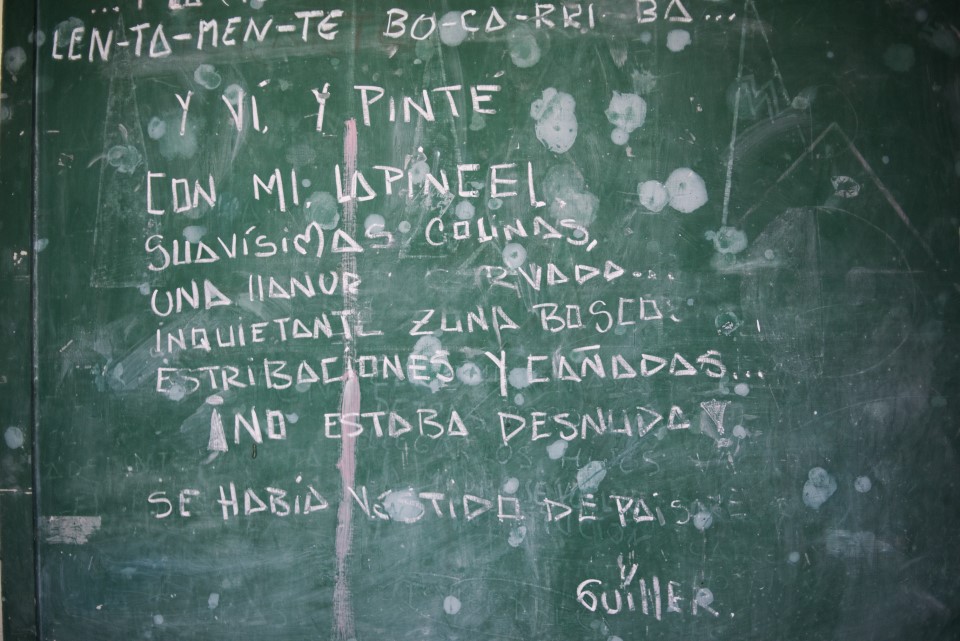 LEN-TA-MEN-TE BO-CA-RRI BA...
Y VÍ, Y PINTE
CON MI LAPINCEL
SUAVÍSIMAS COLINAS,
UNA llANUR RVADA...
INQUIETANTE ZONA BOSCO.
ESTRIBACIONES Y CAÑADAS...
¡NO ESTABA DESNUDA!
SE HABÍA VESTIDO DE PAIS E
GUillER.